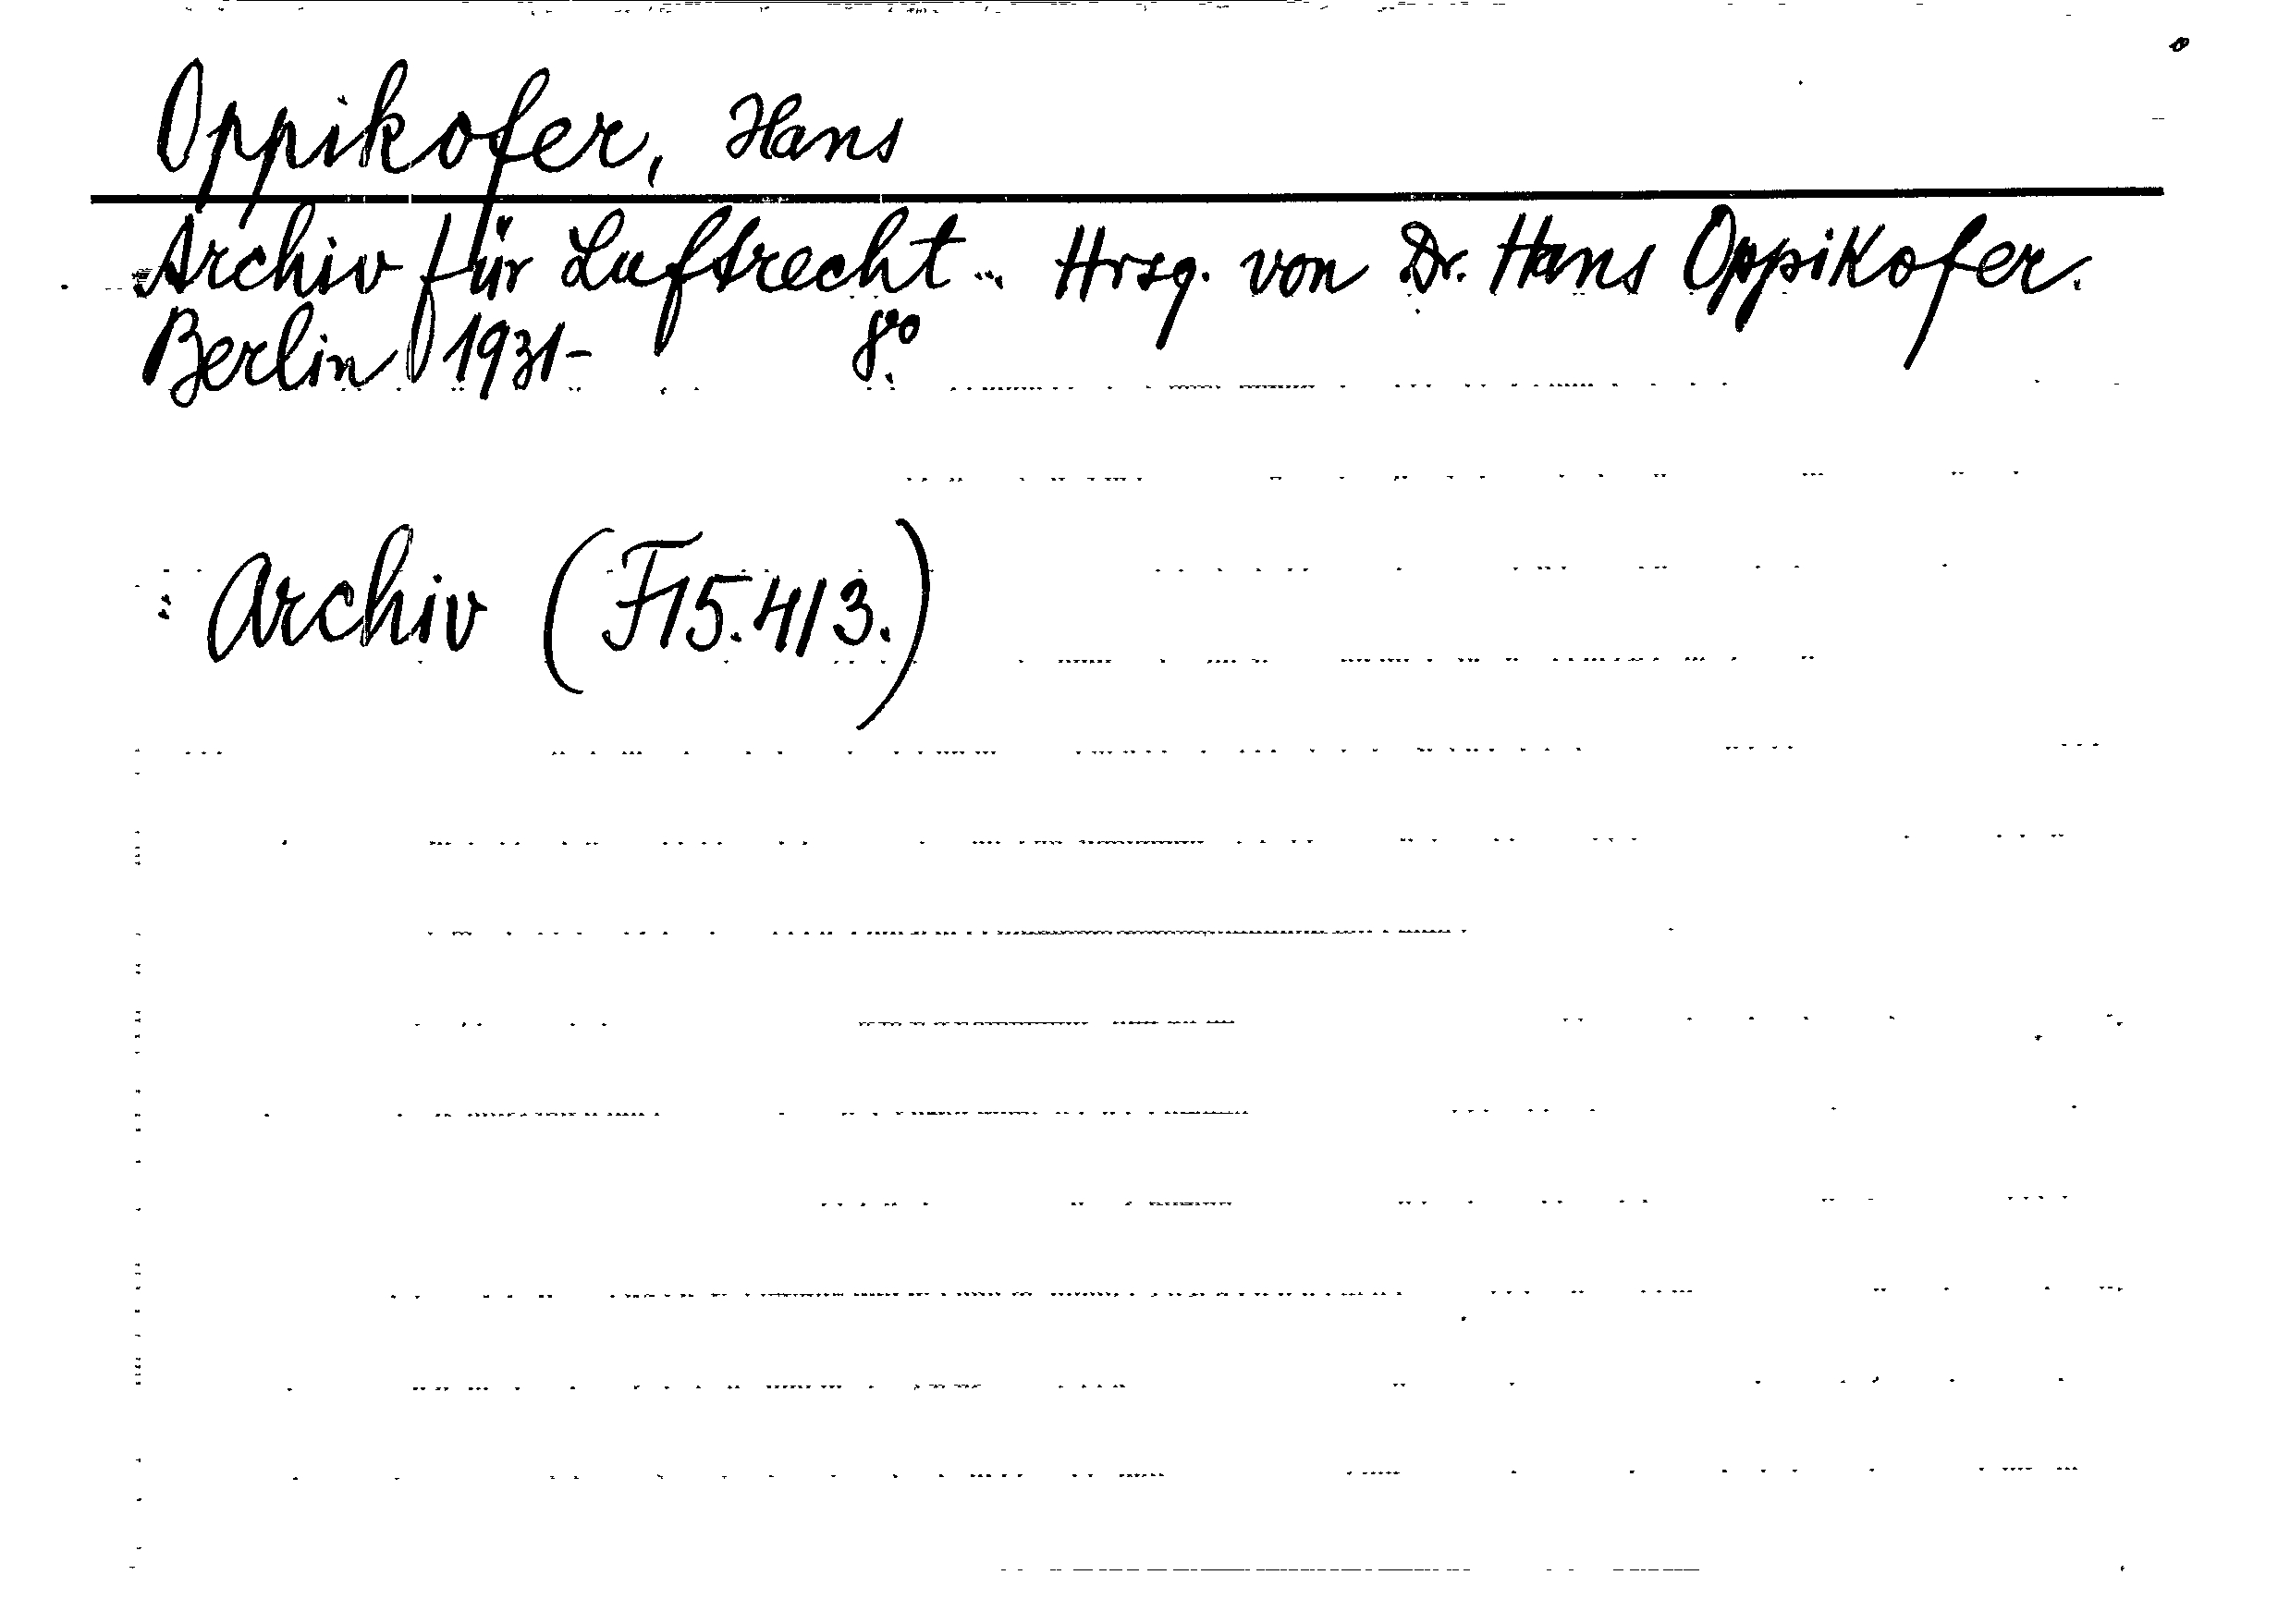 Oppikofer, Hans
Archiv für Luftrecht... Hrsg. von Dr. Hans Oppikofer.
Berlin 1931- 8°.
Archiv (F15.413.)